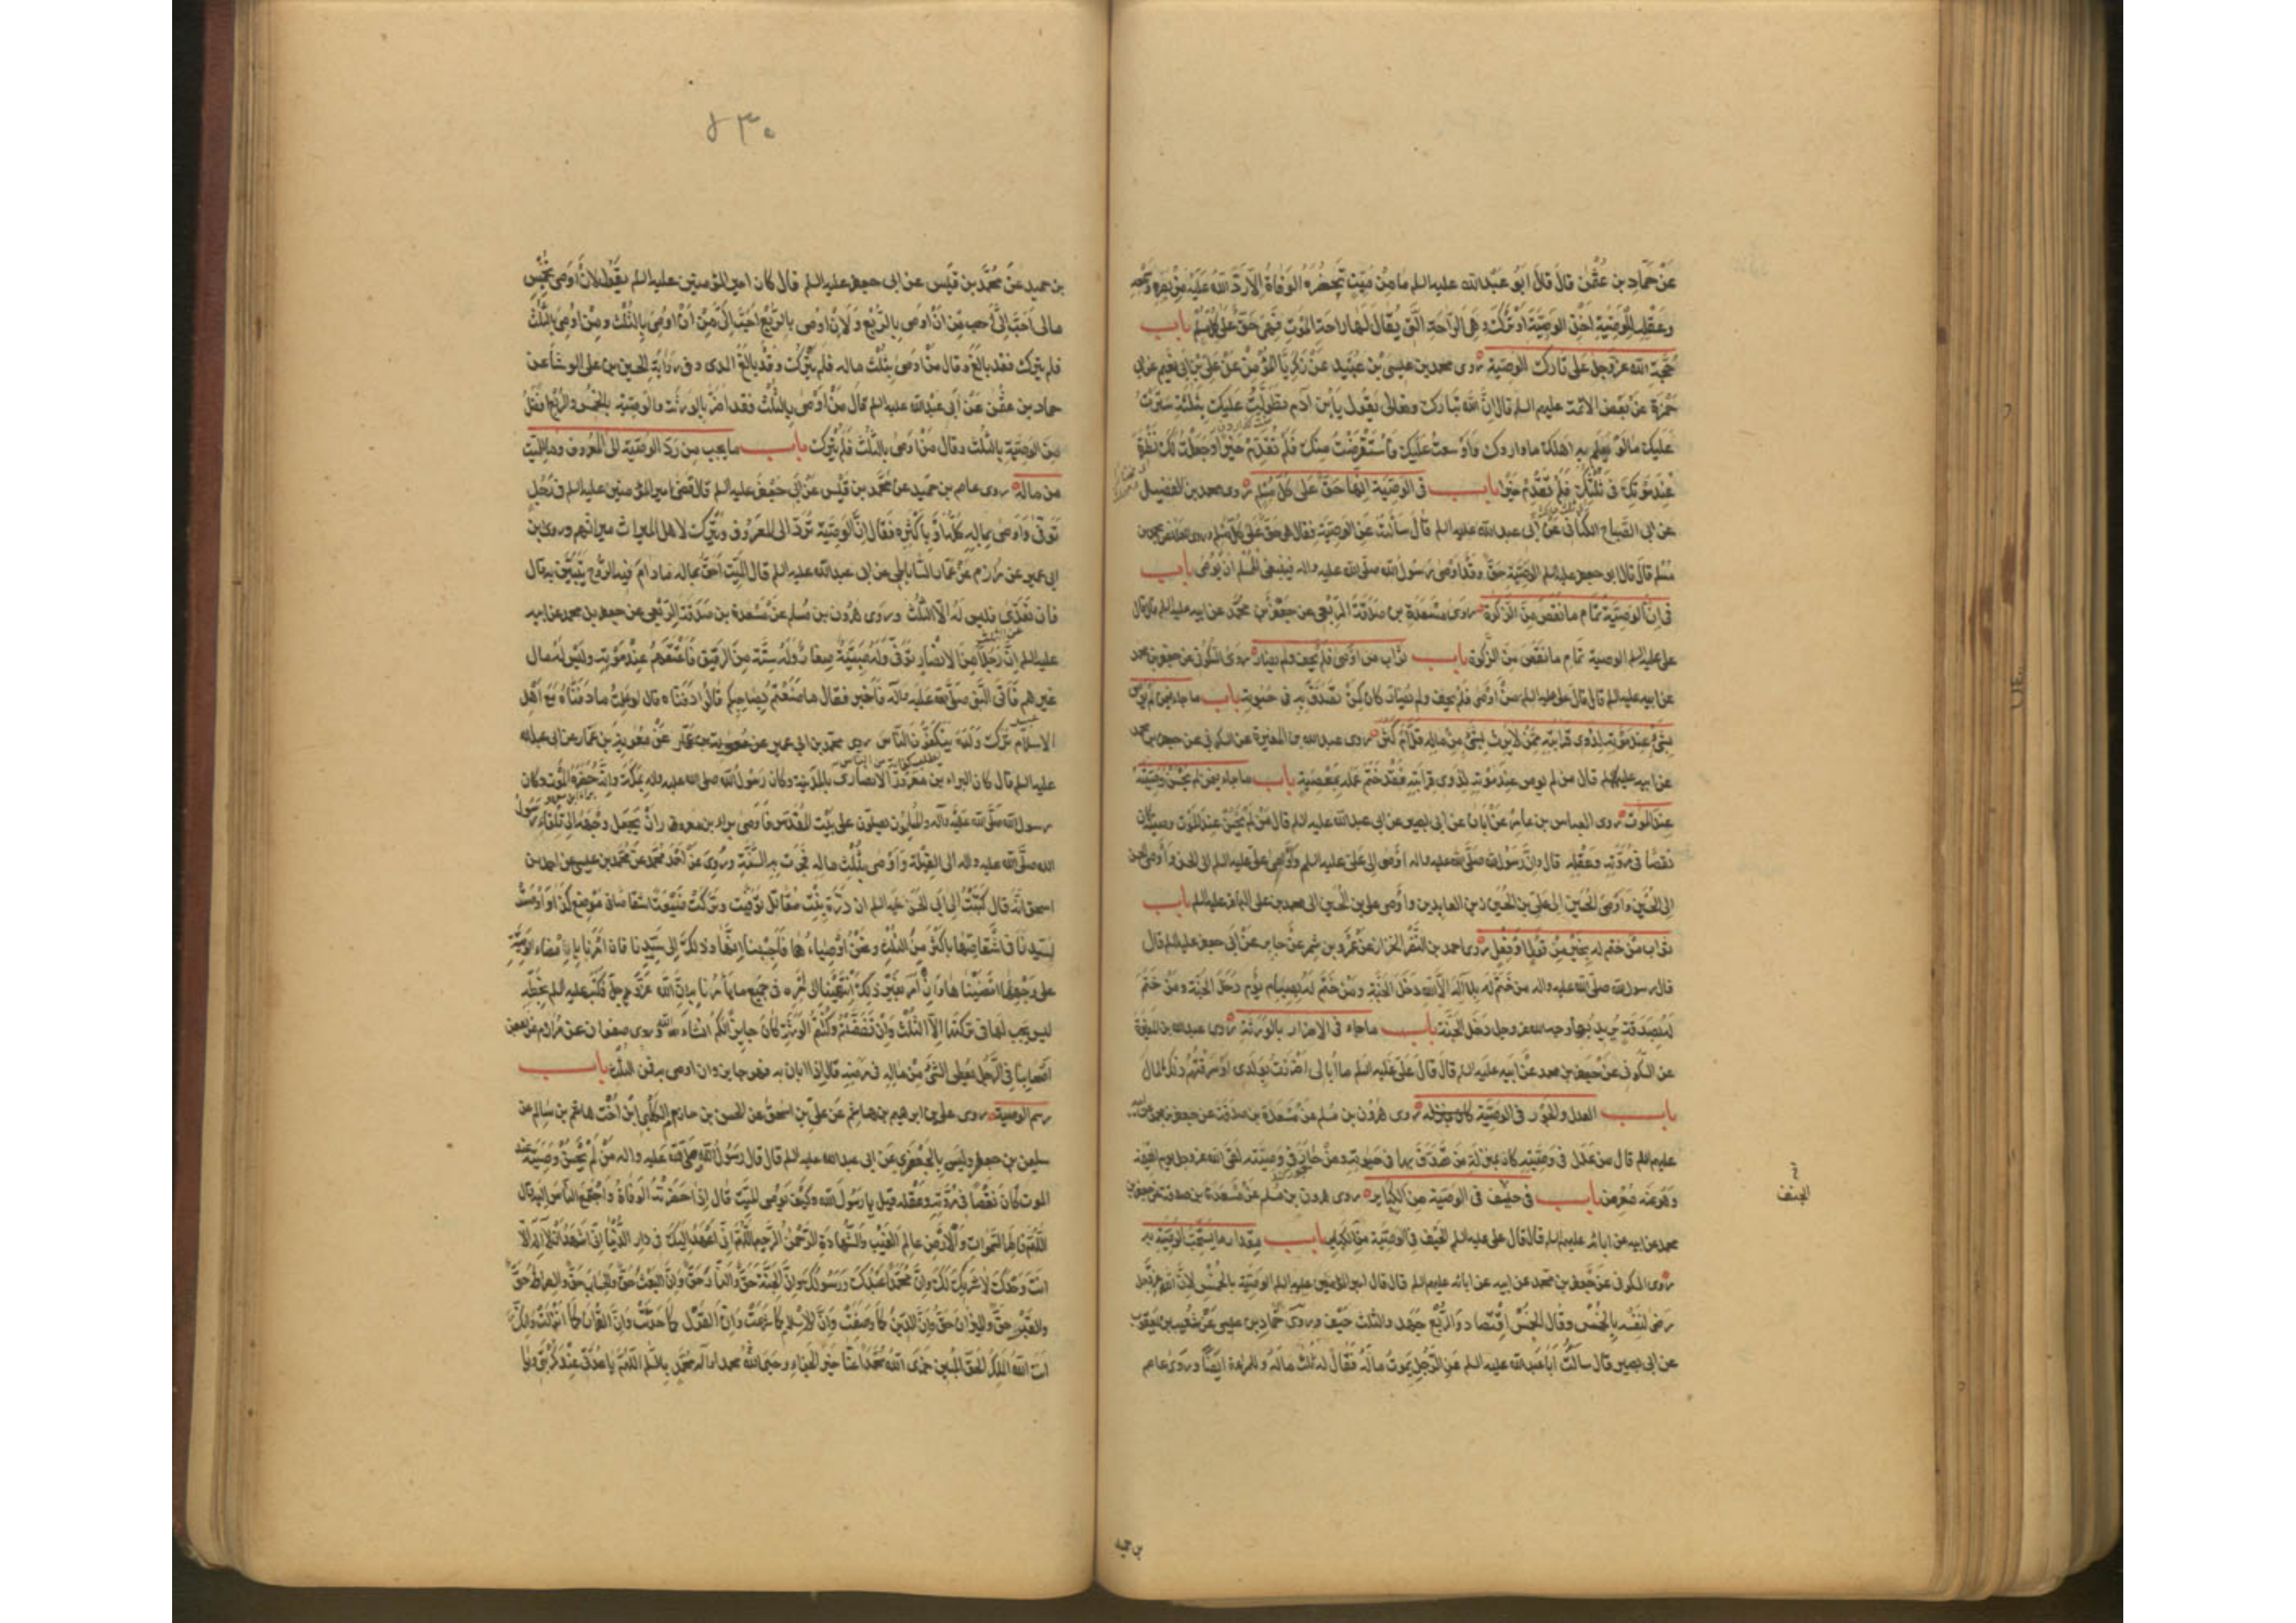 عَنْ حَمّادِ بن عُثمٰن قالَ قالَ ابَوُ عَبْدالله عليه السلم مامِنْ مَيّتٍ تَحضُرُه الوَفاةُ اِلّا رَدَّ اللهُ عَلَيْهِ مِنْ بَصَرِهِ وَسَمْعِهِ
وعَقْلِهِ لِلْوَصِيَّةِ اَخَذَ الوَصِيَّةَ اَوْ تَرَكَ وَهِيَ الرّاحَةُ الَّتي يُقالُ لَها راحَةُ المَوْتِ فَهِيَ حَقٌّ عَلى كُلِّ مُسْلِمٍ باب
حُجَّةِ الله عزّ وجلّ عَلى تارك الوَصِيَّةِ روى محمد بن عيسى بْن عُبَيْدٍ عَنْ زكَرِيّا المُؤْمِنِ عَنْ عَليّ بْنِ اَبي نُعَيم عن ابى
حَمْزَةَ عَنْ بَعْضِ الائمّة عليهم السلم قال اِنَّ الله تَبارَك وتعالى يقول يَا بْنَ آدمَ تَطَوَّلْتُ عَلَيك بِثَلثَةٍ سَتَرْتُ
عَلَيك مالَوْ يَعلَم بِهِ اَهلُك ماوارَوك وَاَوْسعتُ عَلَيكَ فَاسْتَقْرَضْتُ مِنك فَلَم تُقَدِّمْ خَيْرًا وَجَعَلْتُ لَكَ نَظْرَةً
عِنْدَ مَوْتِكَ فى ثُلْثِكَ فَلَمْ تُقَدِّمْ خَيْرًا باب فى الوَصِيّةِ اِنَّها حَقٌّ عَلى كُلّ مُسْلِم روى محمد بن الفضيل
عن ابى الصَّبّاح الكنانى عَنْ اَبى عبدالله عليه السلم قالَ سَاَلْتُهُ عَنِ الوَصِيّةِ فقال هى حَقّ عَلى كُلّ مُسْلم وروى العلاء عن محمد بن
مُسْلم قالَ قالَ ابو جعفر عليه السلم الوَصِيَّة حَقٌّ وقَدْ اَوْصى رَسُولُ الله صلّى الله عليه واله فينبَغى لِلمُسْلم اَنْ يُوصِىَ باب
فى اِنَّ الوَصِيَّةَ تمام مانَقَصَ مِنَ الزَّكوة رَوى مَسْعَدَة بن صَدَقَةَ الرَّبَعى عن جَعْفَر بن محمَّد عن ابيه عليه السلم قال قال
على عليه السلم الوصية تمام مانَقَصَ مِنَ الزَّكوة باب ثَواب من اَوْصى فَلَمْ يَحِف وَلَم يُضارّ روى السّكونى عن جعفر بن محمد
عن ابيه عليه السلم قال قالَ علىّ عليه السلم مَنْ اَوْصى فَلَمْ يَحِف ولم يُضارّ كانَ كَمَنْ تَصَدَّقَ بِهِ فى حَيوته باب ما جاء فيمَن لَم يُوص
بِشَىْءٍ عِندَ مَوْتِه لِذَوى قَرابَتِهِ مِمَّنْ لايَرِث بشىءٍ مِنْ مالِه قَلَّ اَمْ كَثُرَ روى عبدالله بن المغيرة عن السكونى عن جعفر بن محمد
عن ابيه عليهما السلم قال من لم يوص عِندَ مَوْته لِذَوى قَرابَتِه فَقَدْ خَتَمَ عَمَلَهُ بِمَعْصيةٍ باب ما جاء فيمَن لم يُحْسِنْ وَصِيَّتَهُ
عِندَ المَوْت روى العباس بن عامِر عَنْ اَبان عن ابى بصير عن ابى عبدالله عليه السلم قال مَنْ لَمْ يُحْسِنْ عِنْدَ المَوْت وصيّته كان
نَقصًا فى مُرُوَّتِهِ وَعَقْلِه قال واِنَّ رَسُولَ الله صلّى الله عليه واله اَوْصى اِلى عَلىّ عليه السلم وَاَوْصى علىّ عليه السلم الى الحسن وَاَوْصى الحسن
اِلى الحُسَيْن وَاَوْصَى الحُسَين اِلى عَلىّ بْنِ الحُسَيْن زين العابدين واَوْصى على بن الحُسَين الى محمد بن على الباقر عليه السلم باب
ثواب مَنْ خُتِمَ له بِخَيرٍ مِنْ قَوْلٍ اَوْ فِعْلٍ روى احمد بن النَّضْر الخزاز عَنْ عَمْرِو بن شمر عَنْ جابر عَنْ اَبى جعفر عليه السلم قال
قال رسول الله صلى الله عليه واله من خُتِمَ لَه بِلا اِلهَ اِلّا الله دَخَلَ الجَنَّةَ وَمَنْ خُتِمَ لَهُ بِصِيامِ يَوْم دَخَلَ الجَنّة وَمَنْ خُتِمَ
لَهُ بِصَدَقَةٍ يُريدُ بها وجه الله عز وجل دَخَل الجَنَّة باب ما جاء فى الاضرار بالوَرَثَة روى عبدالله بن المغيرة
عن السّكونى عَنْ جَعفر بن محمد عَنْ اَبيه عليه السلم قال قالَ عَلىّ عَليْهِ السَّلم ما اُبالى اَضْرَرْتُ بِوَلَدى اَوْ سَرَقْتُهُم ذلك المالَ
باب العدل والجَوْر فى الوَصِيَّة روى هٰرُون بن مُسْلم عَنْ مَسْعَدَة بن صدقة عن جعفر بن محمد عن ابيه
عليهما السلم قال من عَدَل فى وَصِيَّتِهِ كانَ بِمَنْزِلَةِ مَن تَصَدَّقَ بِها فى حَيوتهِ ومَنْ جارَ فى وَصِيَّتِه لَقِىَ الله عزوجل يوم القيمة
وهُوَ عَنه مُعْرِض باب فى حَيْف فى الوَصيّة مِنَ الكَبائِر روى هرون بن مُسْلم عن مَسْعَدَة بن صدقة عن جعفر بن
محمد عن ابيه عن ابائه عليهم السلم قال قال على عليه السلم الحَيْف فِى الوَصِيَّةِ مِنَ الكَبائِر باب مِقدار ما يُسْتَحَبّ الوَصِيَّة به
روى السكونى عَنْ جَعفَر بن محَمد عن ابيه عن ابائه عليهم السلم قال قال امير المؤمنين عليه السلم الوَصيّة بِالخُمْس لاَنَّ اللهَ عزّوجلّ
رَضى لِنَفْسِه بِالخُمْس وقال الخُمْسُ اِقْتِصاد وَالرُّبْعُ جَهد والثلث حَيْف وروى حَمّاد بن عيسى عَنْ شُعَيب بن يعقوب
عن ابى بصير قال سَاَلْتُ اَبا عَبدالله عليه السلم عَنِ الرَّجُل يَموتُ مالَهُ فَقالَ لَه ثُلْثُ مالِه وللمرءة ايضًا وروى عاصم
الحيف
بن حميد
٥٣٠
بن حميد عَنْ مُحَمَّد بن قَيْس عن ابى جعفر عليه السلم قال كان امير المؤمنين عليه السلم يقول لاَنْ اُوصى بِخُمْسِ
مالى اَحَبُّ اِلَىَّ مِنْ اَنْ اوصى بِالرُّبْع وَلاَنْ اُوصى بالرُّبْع اَحَبُّ اِلَىَّ مِنْ اَنْ اُوصِىَ بِالثُّلْث ومن اَوْصى بِالثُّلث
فلم يترك فقد بالغَ وقال مَنْ اوصى بِثُلْث ماله فَلَم يَتْرُك وقدْ بالَغَ المَدى وفى رواية الحسين بن على الوشاء عن
حماد بن عثمٰن عَنْ اَبى عَبْدالله عليه السلم قال مَنْ اَوْصى بِالثّلث فقد اَضَرَّ بالوَرَثَة والوَصِيّة بالخُمْس والرُّبْع افضَلُ
مِنَ الوَصِيّةِ بالثّلث وقال مَنْ اَوصى بالثّلث فَلَمْ يَتْرُك باب ما يجب من رَدّ الوَصيّة الى المعْروف وما للميت
من ماله روى عاصم بن حميد عن مُحمَّد بن قَيْس عَنْ اَبى جَعْفر عليه السلم قال قَضى امير المؤمنين عليه السلم فى رَجُلٍ
تَوَفّىٰ وَاَوصى بِمالِهِ كُلِّه اَوْ بِاَكْثَرِه فَقالَ اِنَّ الوَصِيّة تُرَدّ الى المعْرُوف وَيُتْرَك لاهل الميراث ميراثهم وروى ابن
ابى عمير عن مُرازم عَنْ عَمّار السّاباطى عن ابى عبدالله عليه السلم قال المَيّت اَحَقُّ بماله مادامَ فيه الرُّوح يُبَيِّنُ به قال
فَان تَعَدّى فليس لَهُ اِلّا الثُّلث وروى هٰرُون بن مُسْلم عَنْ مَسْعدة بن صَدَقَة الرَّبَعى عن جعفر بن محمد عن ابيه
عليه السلم اِنَّ رَجُلًا مِنَ الانصار تُوُفِّىَ وَلَهُ صِبْيَةٌ صِغارٌ وَلَهُ سِتَّةٌ مِنَ الرَّقيق فَاَعْتَقَهُمْ عِنْدَ مَوْتِه وَلَيْسَ لَهُ مال
غَيرهم فَاُتِىَ النّبى صَلّى الله عَليه وآله فَاُخْبِر فقال ماصَنَعْتُم بِصاحِبكم قالُوا دَفَنّاه قال لو عَلِمْتُ ما دَفَنّاهُ مَعَ اَهْل
الاسلام تَرَكَ وَلَدَهُ يَتَكَفَّفُونَ النّاسَ روى محمّد بن ابى عمير عن مُعوية بن عَمّار عن ابى عبدالله
عليه السلم قال كان البراء بن مَعرُور الانصارى بالمَدينة وكان رَسُولُ الله صلى الله عليه واله بِمَكّة واِنَّه حَضَرَهُ المَوْت وكان
رسول الله صَلّى الله عَلَيْه وَآله والمُسْلمون يصلّون على بَيْت المَقدَس فَاَوصى براء بن معرور اَنْ يُجعل وَجهه اِلى تلقاء رَسُول
الله صلى الله عليه واله الى القِبلَة وَاَوْصى بِثُلْث ماله فَجَرَت بِه السُّنّة ورُوِىَ عَنْ مُحَمَّد بن عيسى عن احمد بن
اسحق انّه قال كَتَبْتُ اِلى اَبى الحسَن عليه السلم ان دُرّةَ بِنْت مُقاتِل تُوفّيَت وَتَرَكَتْ ضَيْعَةً اَشقاصًا فى مَوْضِع كَذا وَاَوْصَت
لِسَيّدنا فى اَشْقاصِها باَكْثَرَ مِنَ الثّلْث وَنَحْنُ اَوْصِياءُها فَاَحْبَبْنا انهاء ذلك اِلى سَيِّدِنا فان اَمَرَنا بِاِمضاءِ الوصيّة
على وَجهِها اَمْضَيْناها وَاِنْ اَمَر بِغَير ذلِك اِنْتَهَيْنا الى اَمْرِه فى جَميعِ ما يَاْمُرنا بِه اِنْ شاءَ الله عَزّ وجلّ فَكَتَب عليه السلم بِخَطِّه
ليس يجب لها فى تَرِكَتِها اِلّا الثُّلْث وَاِنْ تَفَضَّلْتُم وَكُنْتُمُ الوَرَثَةَ كانَ جايزًا لَكُم انشاء الله وروى صفوان عن مُرازم عن بعض
اَصْحابنا فى الرَّجُل يُعْطى الشّىءَ مِنْ مالِه فى مَرَضِه قال اِذا اَبانَ به فهو جايز وان اوصى به فَمِنَ الثُّلْث باب
رسم الوصية روى على بن ابرهيم بن هاشم عَنْ عَلىّ بن اسحٰق عن الحسن بن حازم الكَلْبى ابن اُخْت هاشم بن سالم عن
سليمٰن بن جعفر وليس بالجَعْفَرى عن ابى عبدالله عليه السلم قال قال رَسُولُ الله صلى الله عَليه واله مَنْ لَمْ يُحْسِنْ وَصِيَّتَه عند
الموت كانَ نَقْصًا فى مُرُوَّتِه وعَقْلِه قيل يا رَسُولَ الله وكَيْف يُوصى المَيّت قال اِذا حَضَرَتْهُ الوَفاةُ واجْتَمَعَ النّاسُ اليه قال
اللّهُمَّ فاطِرَ السّمواتِ وَالْاَرْض عالِم الغَيْب والشّهادةِ الرَّحْمٰن الرّحيم اللّهُمَّ اِنّى اَعْهَدُ اِلَيْكَ فى دارِ الدُّنْيا اِنّى اَشْهَدُ اَنْ لا اِلٰهَ الّا
اَنتَ وَحْدَكَ لاشَريكَ لَكَ وَانَّ مُحَمّدًا عَبْدُكَ وَرَسُولُك وانَّ الجَنّةَ حَقٌّ والنّارَ حَقٌّ وَاِنَّ البَعْثَ حَقٌّ والحِسابَ حَقٌّ والصّراطَ حَقّ
والقَبْرَ حَقٌّ والميزان حَقٌّ وانَّ الدّينَ كَما وَصَفْتَ وانَّ الاسْلام كَما شَرَعْتَ وَاِنَّ القَوْلَ كَما حَدَّثْتَ وَانَّ القُرانَ كَما اَنْزَلْتَ وانّك
اَنتَ اللهُ المَلِكُ الحَقّ المُبين جَزَى اللهُ مُحَمّدًا عَنّا خَيْرَ الجَزاءِ وحَيَّى اللهُ محمدا وآل مُحَمَّد بِالسَّلم اللّهُمَّ يا عُدَّتى عِنْدَ كُرْبَتى ويا